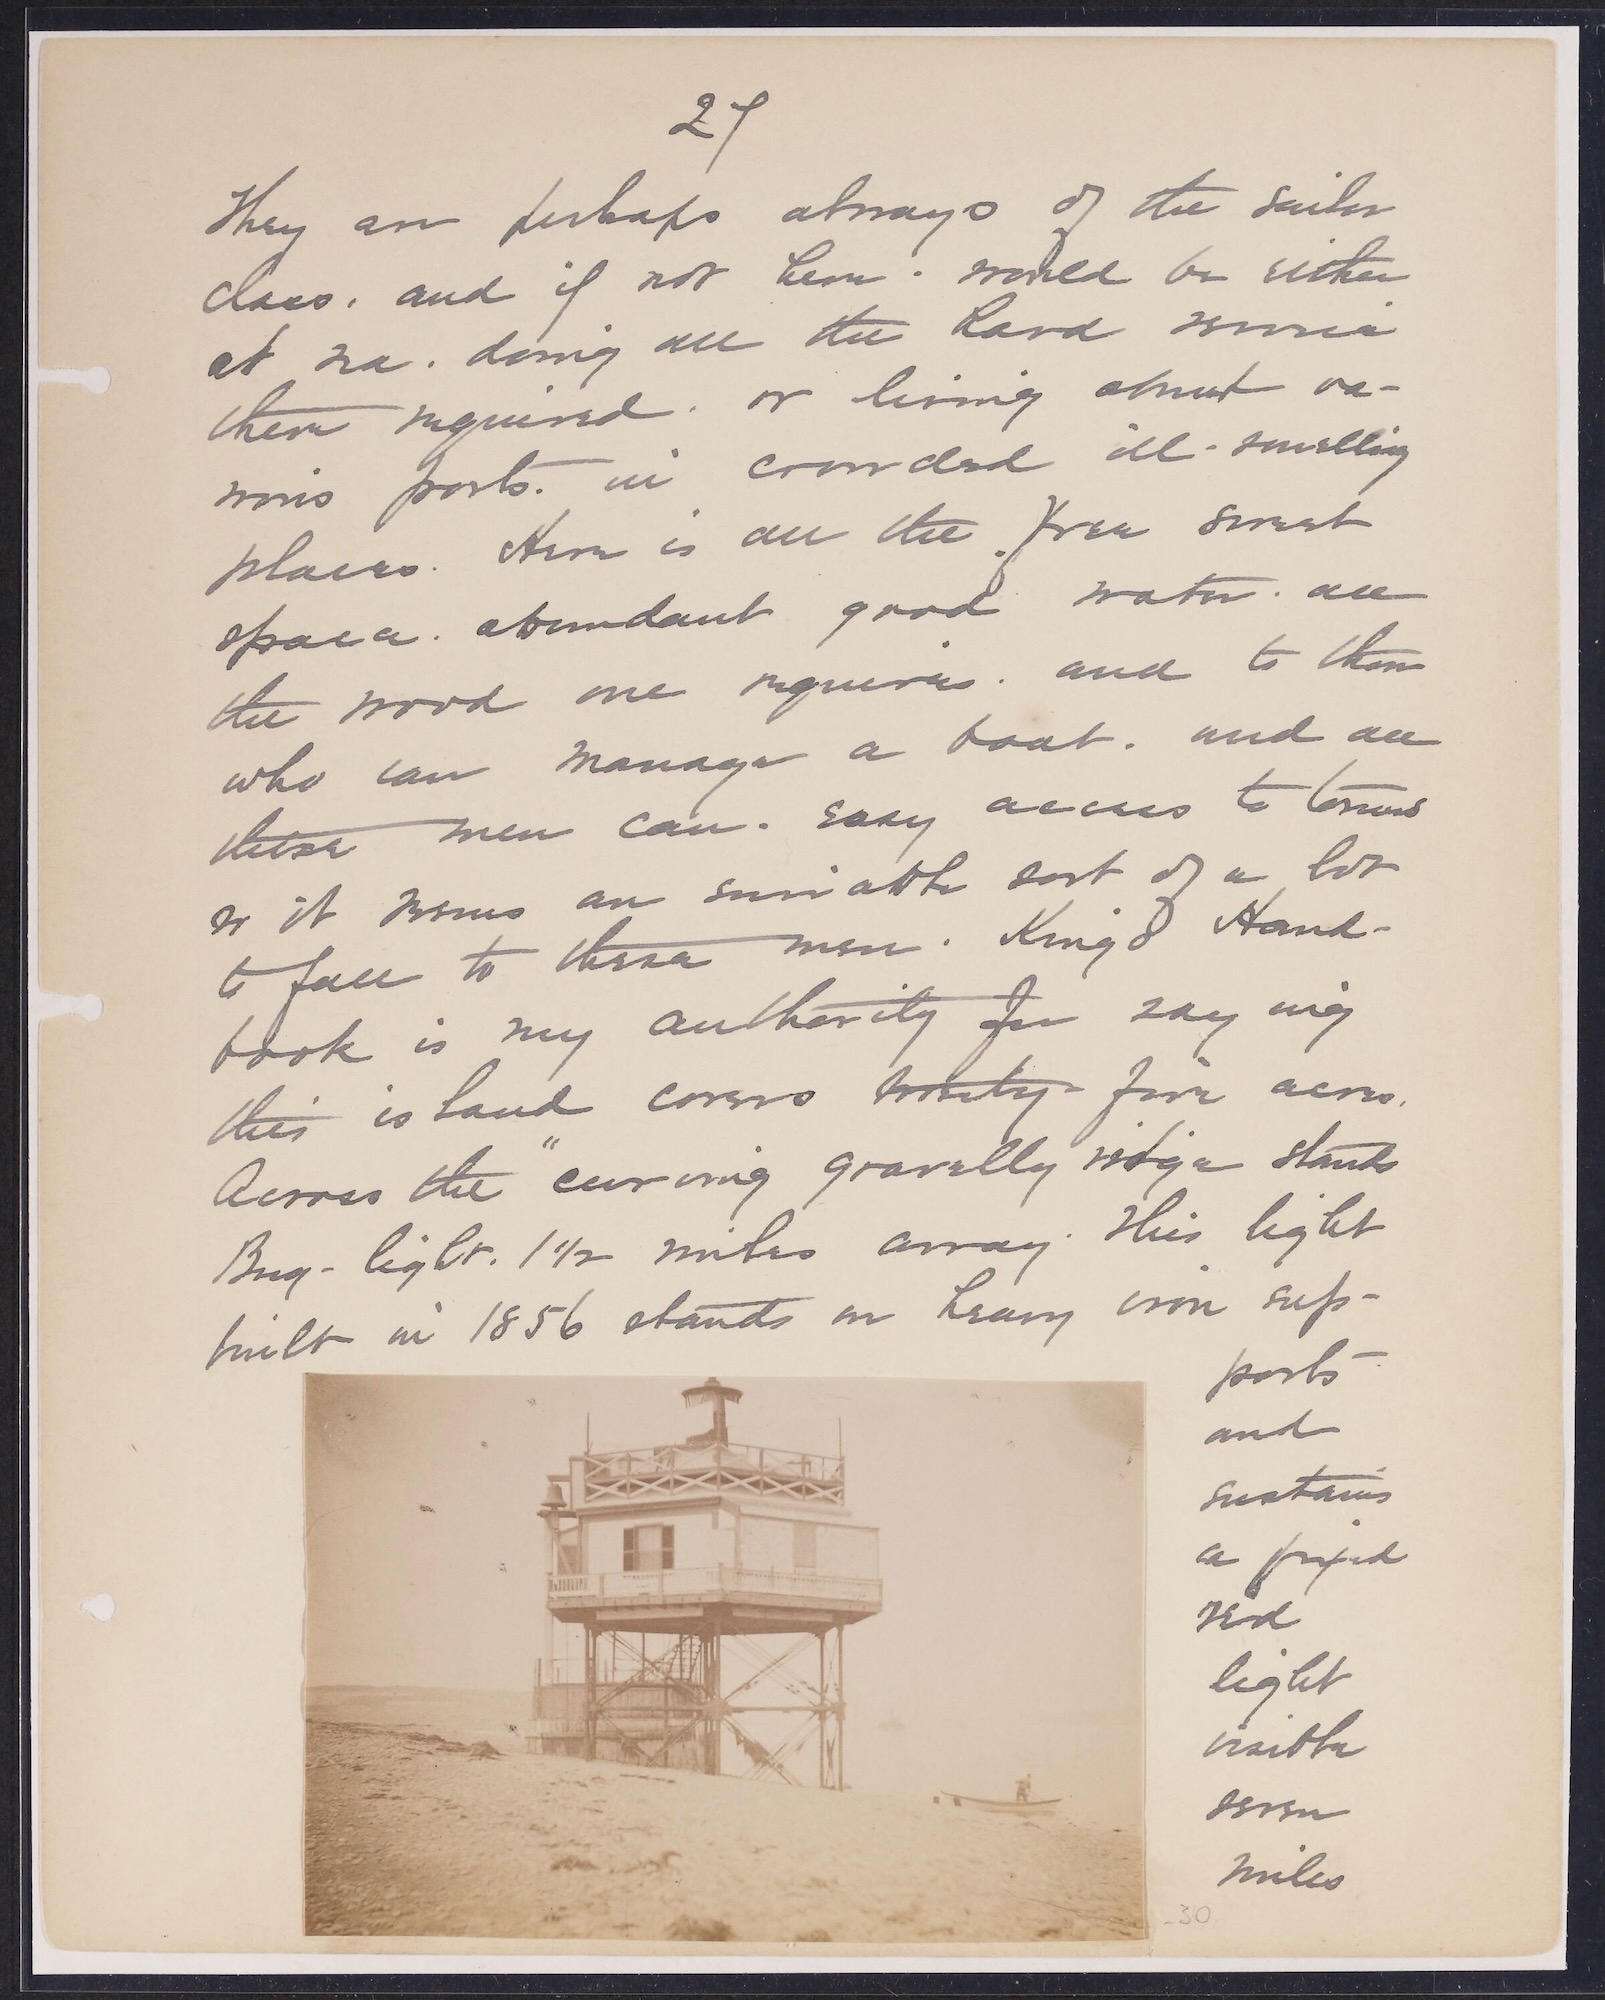 27
They are perhaps always of the sailor
class. and if not here. would be either
at sea. doing all the hard service
there required. or living about va-
rious ports. in crowded ill-smelling
places. Here is all the free sweet
space. abundant good water. all
the wood one requires. and to them
who can manage a boat. and all
these men can. easy access to towns
so it seems an enviable sort of a lot
to fall to these men. King's Hand-
book is my authority for saying
this island covers twenty-five acres.
Across the "curving gravelly ridge stands
Bug-light. 1 1/2 miles away. This light
built in 1856 stands on heavy iron sup-
ports-
and
sustains
a fixed
red
light
visible
seven
miles
-30